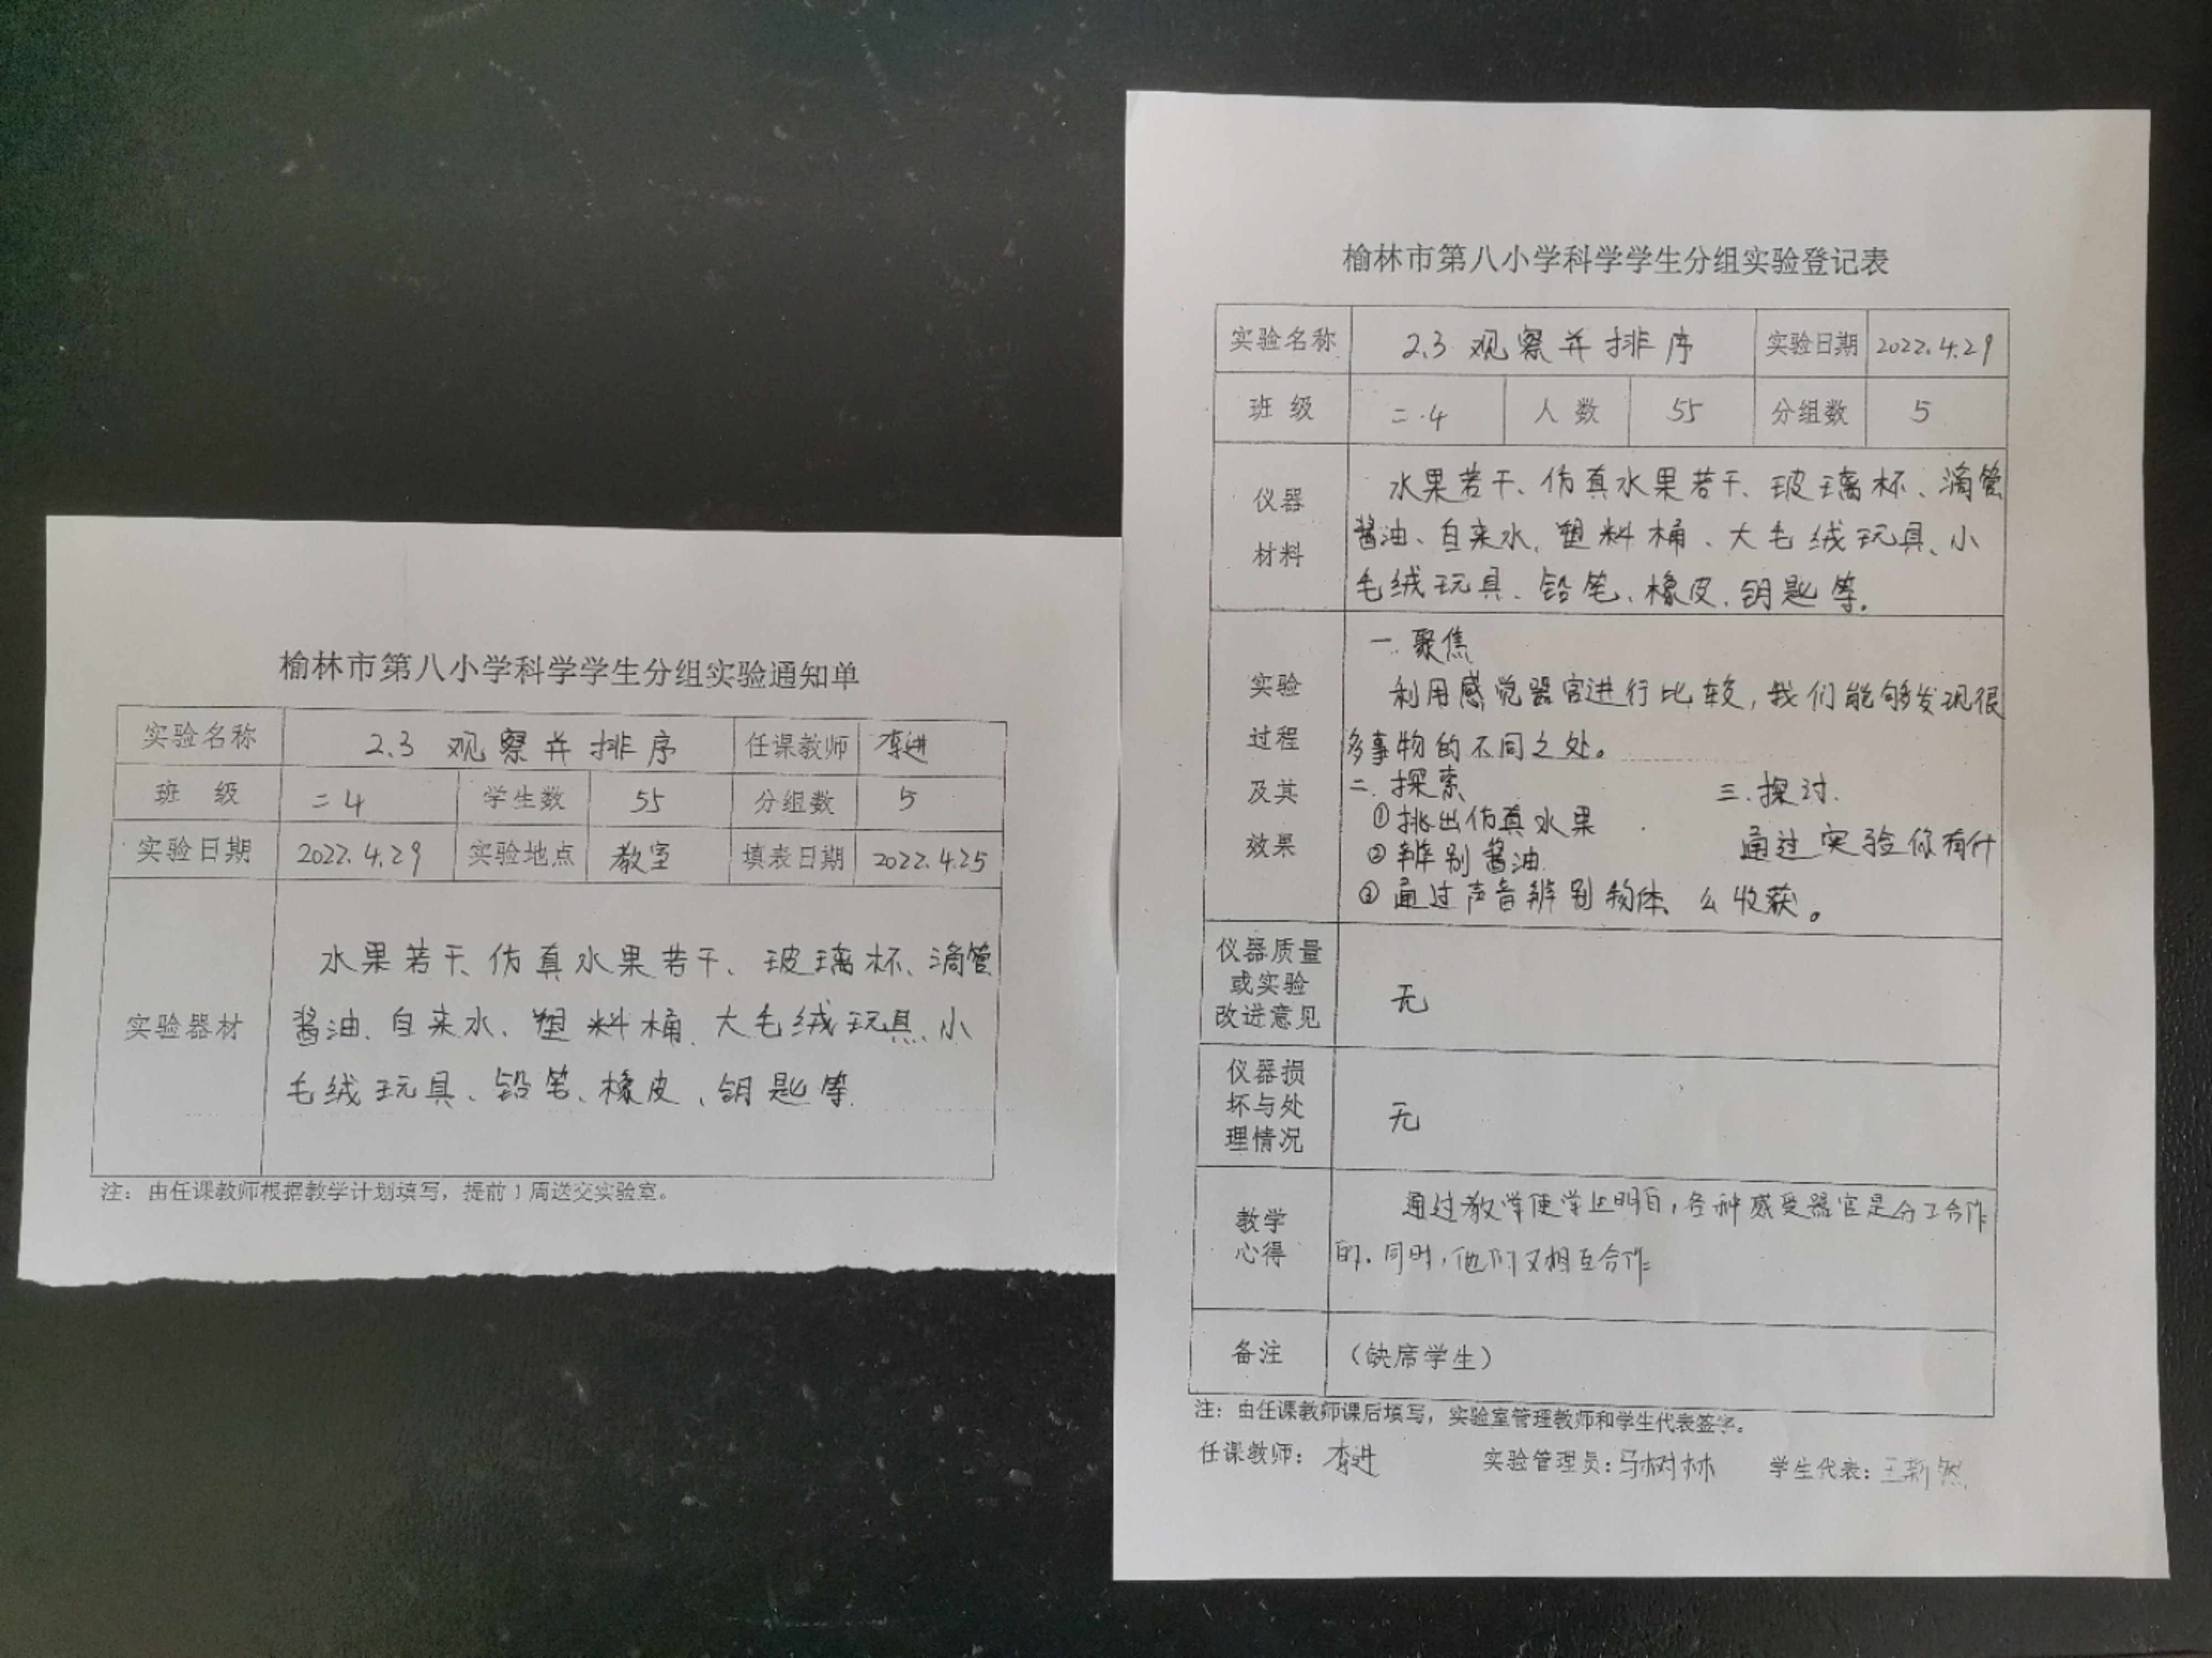 榆林市第八小学科学学生分组实验通知单
实验名称 2.3 观察并排序 任课教师 李进
班 级 二4 学生数 55 分组数 5
实验日期 2022.4.29 实验地点 教室 填表日期 2022.4.25
实验器材
水果若干、仿真水果若干、玻璃杯、滴管
酱油、自来水、塑料桶、大毛绒玩具、小
毛绒玩具、铅笔、橡皮、钥匙等
注：由任课教师根据教学计划填写，提前1周送交实验室。
榆林市第八小学科学学生分组实验登记表
实验名称 2.3 观察并排序 实验日期 2022.4.29
班 级 二.4 人 数 55 分组数 5
仪器
材料
水果若干、仿真水果若干、玻璃杯、滴管
酱油、自来水、塑料桶、大毛绒玩具、小
毛绒玩具、铅笔、橡皮、钥匙等。
实验
过程
及其
效果
一.聚焦
利用感觉器官进行比较，我们能够发现很
多事物的不同之处。
二.探索
①挑出仿真水果
②辨别酱油
③通过声音辨别物体
三.探讨.
通过实验你有什
么收获。
仪器质量
或实验
改进意见
无
仪器损
坏与处
理情况
无
教学
心得
通过教学使学生明白，各种感受器官是分工合作
的.同时，他们又相互合作
备注 （缺席学生）
注：由任课教师课后填写，实验室管理教师和学生代表签字。
任课教师：李进 实验管理员：马树林 学生代表：王新然